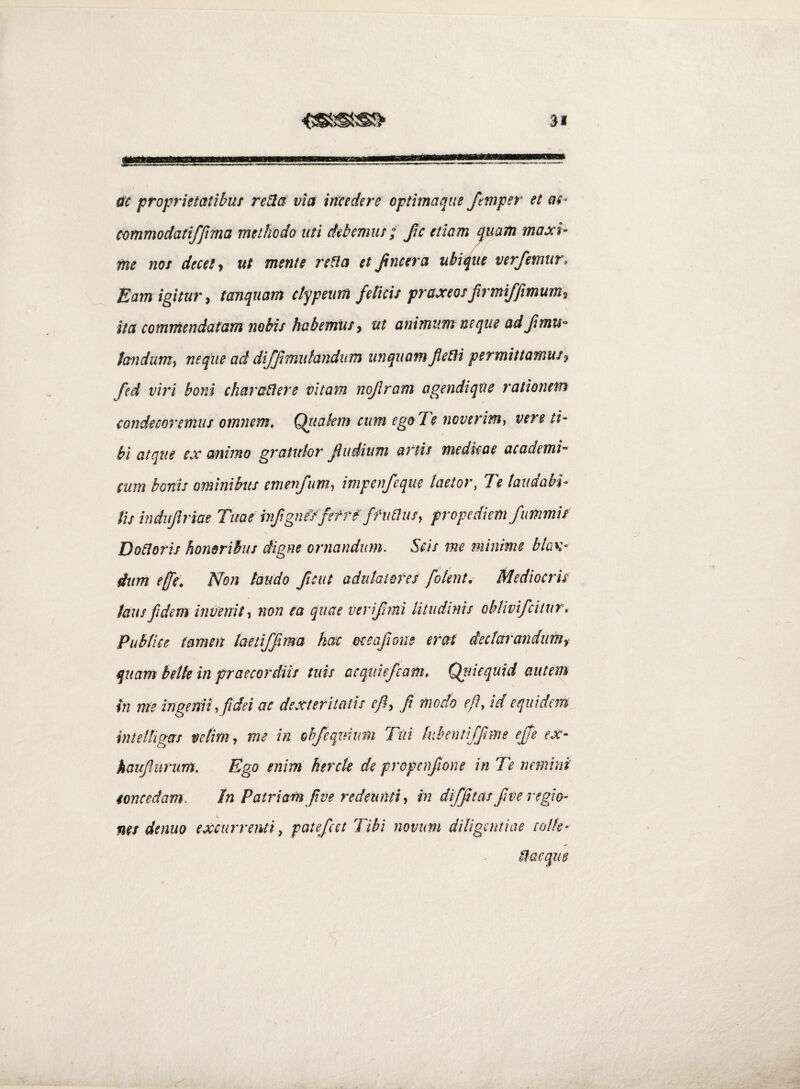 31
ac proprietatibus recta via incedere optimaque semper et ac-
commodatissima methodo uti debemus; sic etiam quam maxi-
me nos decet, ut mente recta et sincera ubique versemur.
Eam igitur, tanquam clypeum felicis praxeos firmissimum,
ita commendatam nobis habemus, ut animum neque ad simu-
landum, neque ad dissimulandum unquam flecti permittamus,
sed viri boni charactere vitam nostram agendique rationem
condecoremus omnem. Qualem cum ego Te noverim, vere ti-
bi atque ex animo gratulor studium artis medicae academi-
cum bonis ominibus emensum, impenseque laetor, Te laudabi-
lis industriae Tuae insignes ferre fructus, propediem summis
Doctoris honoribus digne ornandum. Scis me minime blan-
dum esse. Non laudo sicut adulatores solent. Mediocris
laus fidem invenit, non ea quae verisimi litudinis obliviscitur.
Publice tamen laetissima hac occasione erat declarandum,
quam belle in praecordiis tuis acquiescam. Quicquid autem
in me ingenii, fidei ac dexteritatis est, si modo est, id equidem
intelligas velim, me in obsequium Tui lubentissime esse ex-
hausturum. Ego enim hercle de propensione in Te nemini
concedam. In Patriam sive redeunti, in dissitas sive regio-
nes denuo excurrenti, patescet Tibi novum diligentiae colle-
ctaeque